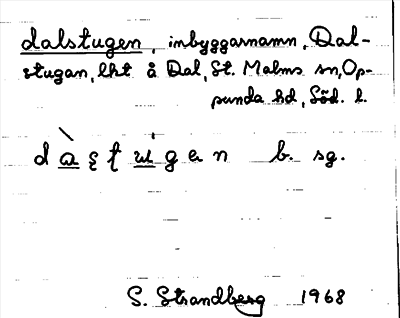 dalstugen, inbyggarnamn, Dal-
stugan, lht å Dal, St. Malms sn, Op-
punda hd, Söd. l.
dàʂʈu̇gen b. sg.
S. Strandberg 1968